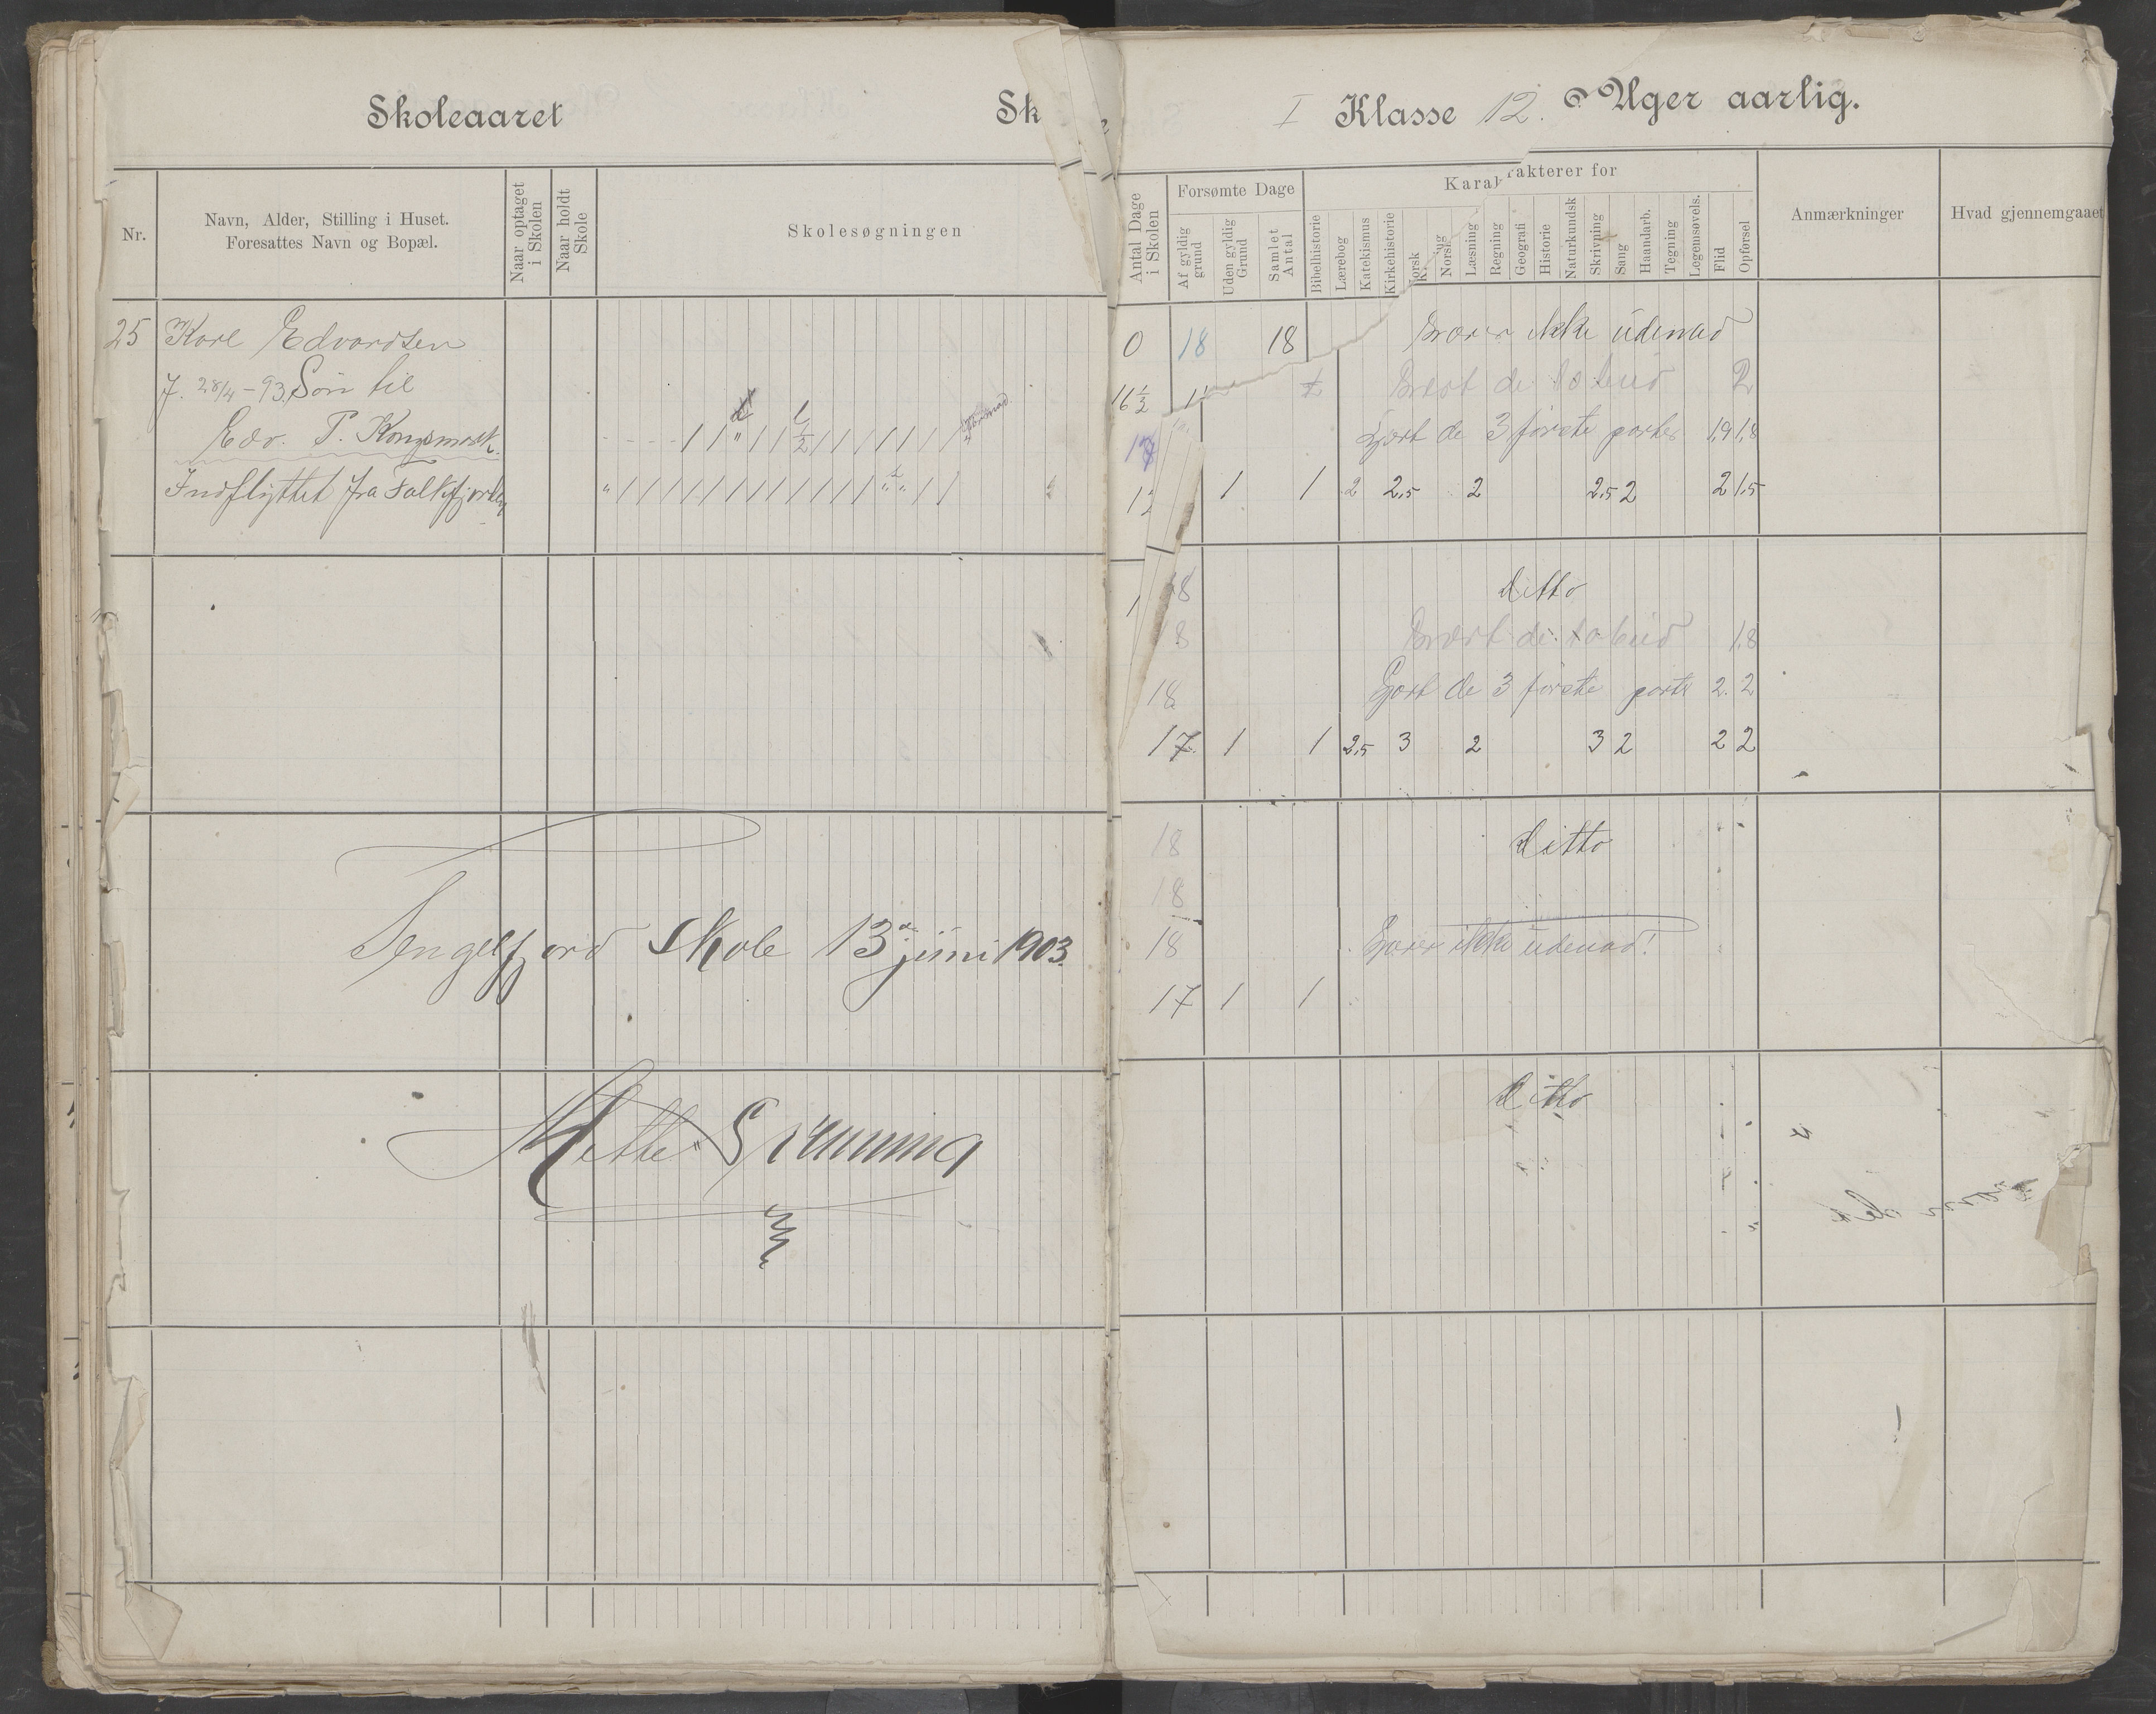 Skoleaaret
Sk
I Klasse 12. Uger aarlig.
Nr.
Navn, Alder, Stilling i Huset.
Foresattes Navn og Bopæl.
Naar optaget
i Skolen
Naar holdt
Skole
Skolesøgningen
Antal Dage
i Skolen
Forsømte Dage
Af gyldig
grund
Uden gyldig
Grund
Samlet
Antal
Karakterer for
Bibelhistorie
Lærebog
Katekismus
Kirkehistorie
Norsk
Læsning
Regning
Geografi
Historie
Naturkundsk
Skrivning
Sang
Haandarb.
Tegning
Legemsøvels.
Flid
Opførsel
Anmærkninger
Hvad gjennemgaaet
25 Karl Edvardsen
f. 28/4 - 93. Søn til
Edv. P. Kongsmark.
Indflyttet fra
0 18 18 ikke udenad
16 1/2 2
de 3 første parter 1,9 1,8
1 1 2 2,5 2 2,5 2 2 1,5
18 ditto
8 1,8
18 Gjort de 3 første parti 2. 2
17. 1 1 2,5 3 2 3 2 2 2
18 ditto
18
18 ikke udenad!
17 1 1
Tengelfjord Skole 13de juni 1903.
Mette
ditto